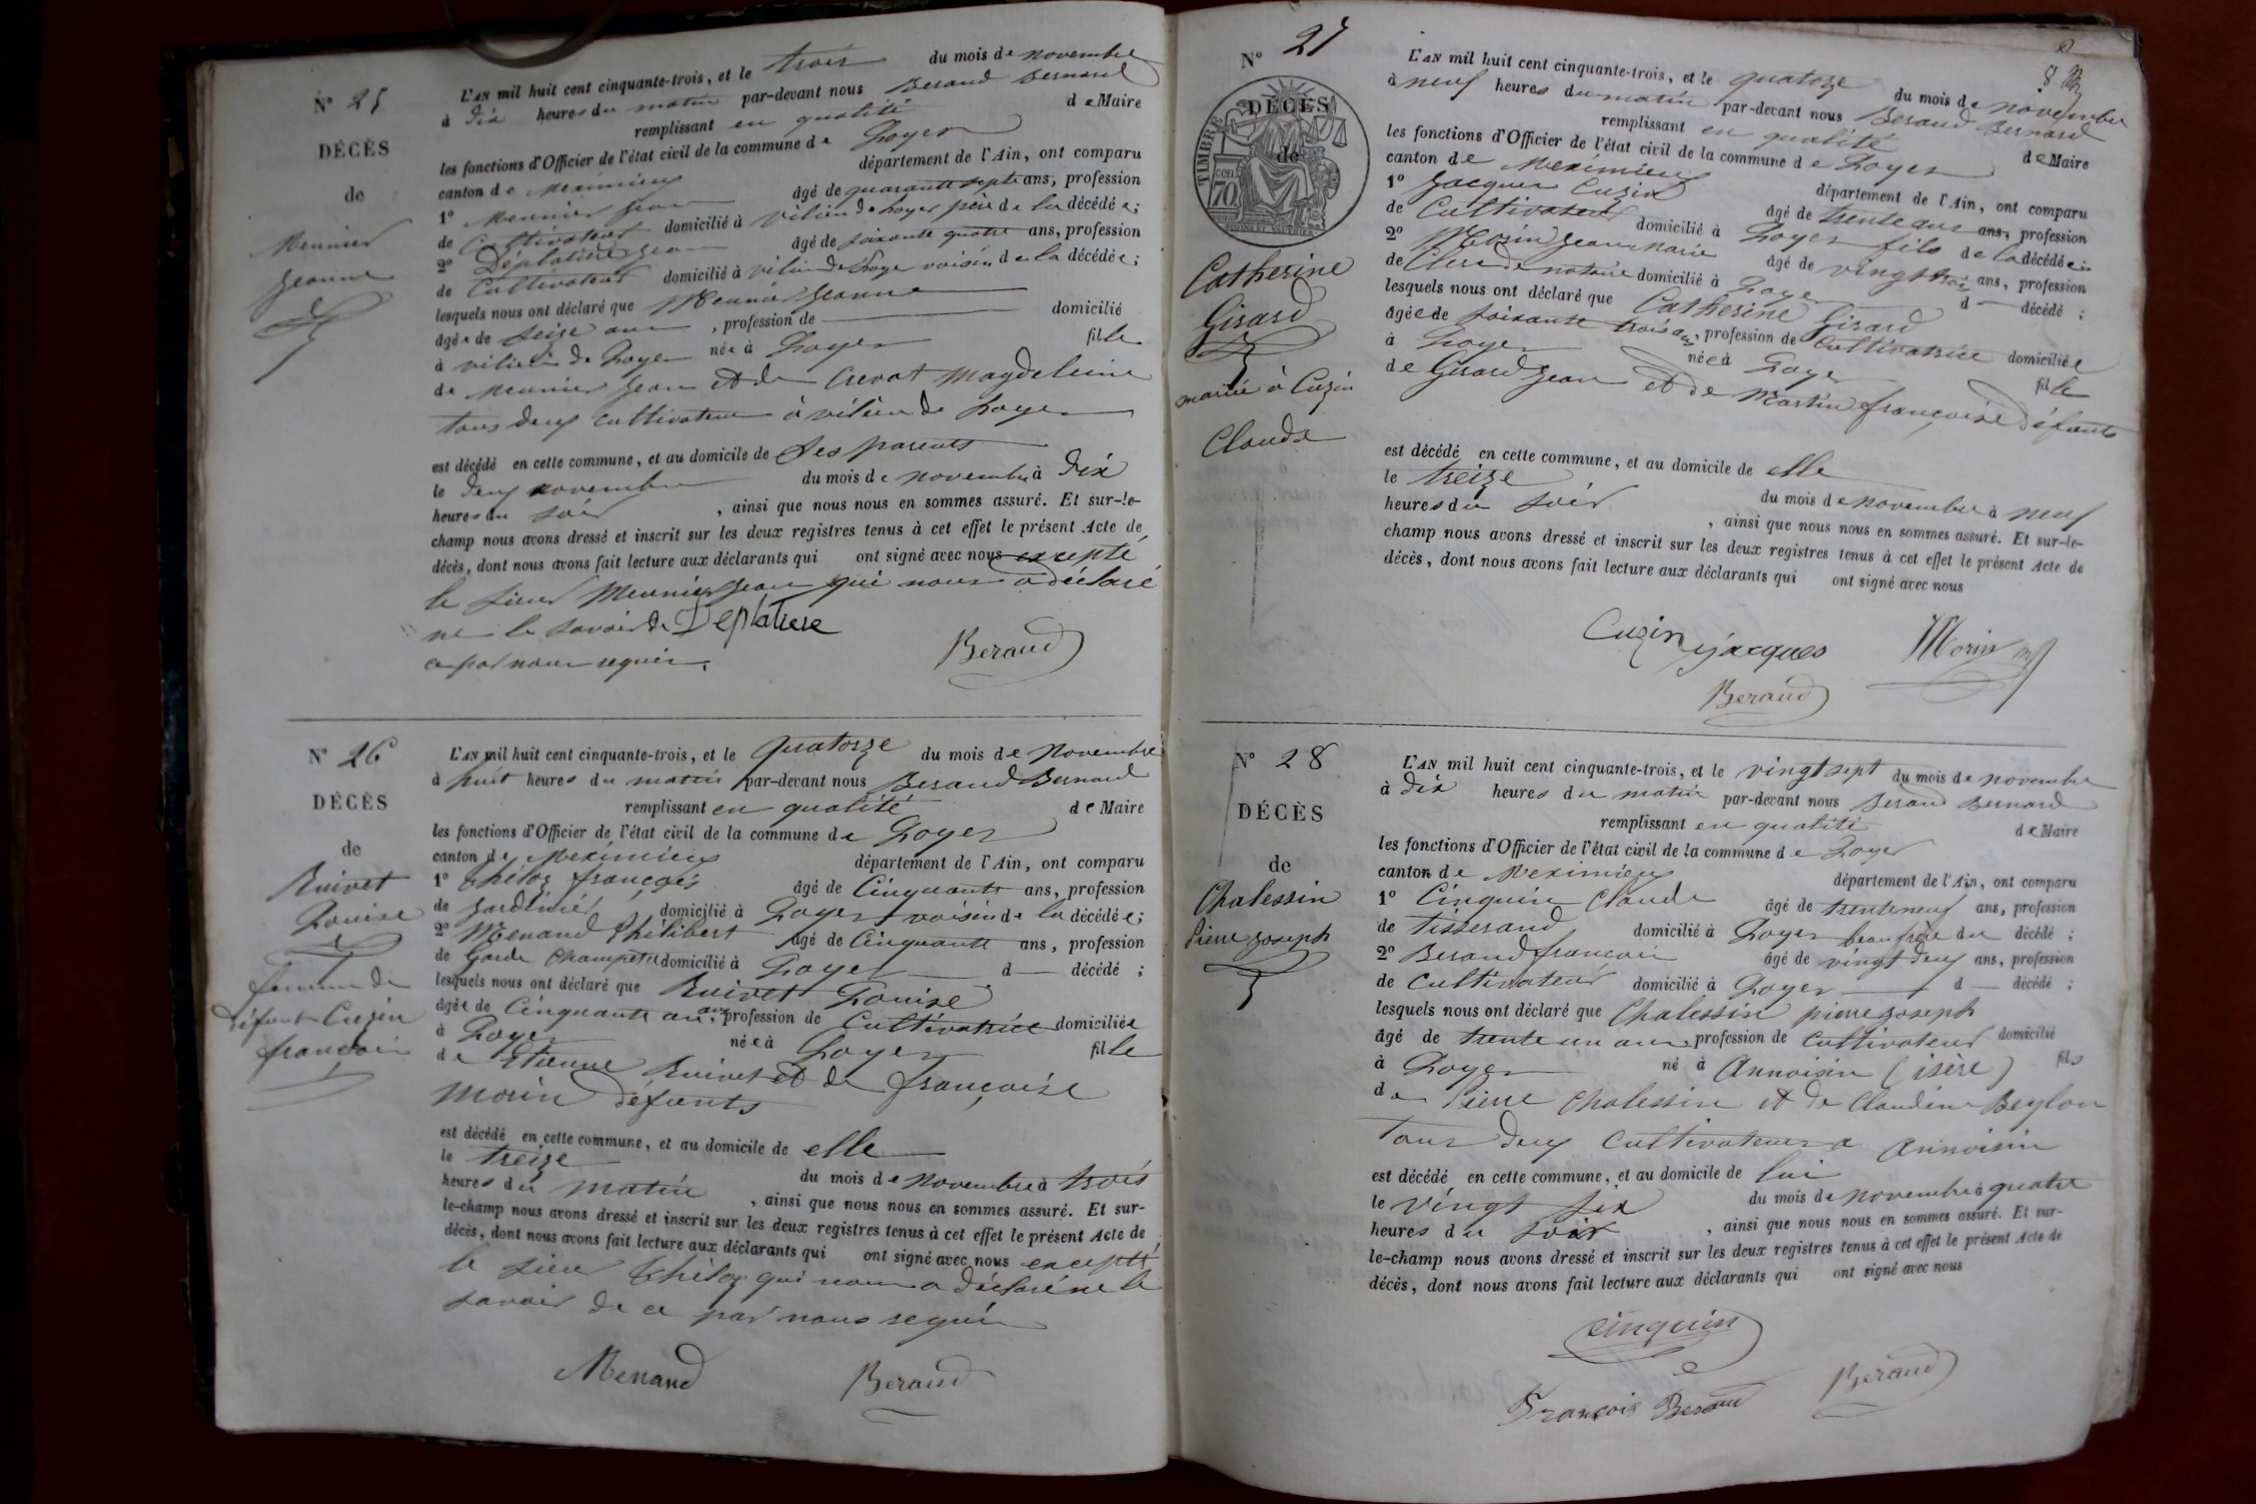 N° 25
DÉCÈS
de
Meunier
Jeanne
L'AN mil huit cent cinquante-trois, et le trois du mois de novembre
à dix heures du matin par-devant nous Beraud Bernard
remplissant en qualité de Maire
les fonctions d'Officier de l'état civil de la commune de Loyes
canton de Meximieux département de l'Ain, ont comparu
1° Meunier Jean âgé de quarante sept ans, profession
de Cultivateur domicilié à vilieu de Loyes père de la décédée;
2° Déplatière Jean âgé de soixante quatre ans, profession
de Cultivateur domicilié à vilieu de Loyes voisin de la décédée;
lesquels nous ont déclaré que Meunier Jeanne
âgée de seize ans, profession de domicilié
à vilieu de Loyes née à Loyes fille
de Meunier Jean et de Crevat Magdeleine
tous deux cultivateurs à vilieu de Loyes
est décédé en cette commune, et au domicile de ses parents
le deux novembre du mois de novembre à dix
heures du soir, ainsi que nous nous en sommes assuré. Et sur-le-
champ nous avons dressé et inscrit sur les deux registres tenus à cet effet le présent Acte de
décès, dont nous avons fait lecture aux déclarants qui ont signé avec nous excepté
le sieur Meunier Jean qui nous a déclaré
ne le savoir de Deplatiere
ce par nous requis.
Beraud
N° 26
DÉCÈS
de
Ruivet
Louise
femme de
défunt Cuzin
françois
L'AN mil huit cent cinquante-trois, et le quatorze du mois de novembre
à huit heures du matin par-devant nous Beraud Bernard
remplissant en qualité de Maire
les fonctions d'Officier de l'état civil de la commune de Loyes
canton de Meximieux département de l'Ain, ont comparu
1° Théloz françois âgé de Cinquante ans, profession
de Jardinier domicilié à Loyes voisin de la décédée;
2° Menand Philibert âgé de Cinquante ans, profession
de Garde Champetre domicilié à Loyes d décédé;
lesquels nous ont déclaré que Ruivet Louise
âgée de Cinquante un ans, profession de Cultivatrice domiciliée
à Loyes née à Loyes fille
de Etienne Ruivet et de françoise
Morin défunts
est décédé en cette commune, et au domicile de elle
le treize du mois de novembre à trois
heures du matin, ainsi que nous nous en sommes assuré. Et sur-
le-champ nous avons dressé et inscrit sur les deux registres tenus à cet effet le présent Acte de
décès, dont nous avons fait lecture aux déclarants qui ont signé avec nous excepté
le sieur Théloz qui nous a déclaré ne le
savoir de ce par nous requis
Menand Beraud
N° 27
TIMBRE
DÉCÈS
de
70 cen
Catherine
Girard
mariée à Cuzin
Claude
L'AN mil huit cent cinquante-trois, et le quatorze du mois de novembre
à neuf heures du matin par-devant nous Beraud Bernard
remplissant en qualité de Maire
les fonctions d'Officier de l'état civil de la commune de Loyes
canton de Meximieux département de l'Ain, ont comparu
1° Jacques Cuzin âgé de trente ans ans, profession
de Cultivateur domicilié à Loyes fils de la décédée;
2° Morin Jean Marie âgé de vingt trois ans, profession
de Clerc de notaire domicilié à Loyes d décédé;
lesquels nous ont déclaré que Catherine Girard
âgée de soixante trois ans, profession de Cultivatrice domiciliée
à Loyes née à Loyes fille
de Girard Jean et de Martin françoise défunts
est décédé en cette commune, et au domicile de elle
le treize du mois de novembre à neuf
heures du soir, ainsi que nous nous en sommes assuré. Et sur-le-
champ nous avons dressé et inscrit sur les deux registres tenus à cet effet le présent Acte de
décès, dont nous avons fait lecture aux déclarants qui ont signé avec nous
Cuzin jacques Morin
Beraud
N° 28
DÉCÈS
de
Chalessin
Pierre Joseph
L'AN mil huit cent cinquante-trois, et le vingt sept du mois de novembre
à dix heures du matin par-devant nous Beraud Bernard
remplissant en qualité de Maire
les fonctions d'Officier de l'état civil de la commune de Loyes
canton de Meximieux département de l'Ain, ont comparu
1° Cinquin Claude âgé de trente neuf ans, profession
de tisserand domicilié à Loyes beau frère du décédé;
2° Beraud francois âgé de vingt deux ans, profession
de Cultivateur domicilié à Loyes d décédé;
lesquels nous ont déclaré que Chalessin pierre Joseph
âgé de trente un ans, profession de Cultivateur domicilié
à Loyes né à Annoisin (isère) fils
de Pierre Chalessin et de Claudine Beylon
Tous deux Cultivateurs a Annoisin
est décédé en cette commune, et au domicile de lui
le vingt six du mois de novembre à quatre
heures du soir, ainsi que nous nous en sommes assuré. Et sur-
le-champ nous avons dressé et inscrit sur les deux registres tenus à cet effet le présent Acte de
décès, dont nous avons fait lecture aux déclarants qui ont signé avec nous
Cinquin
François Beraud Beraud